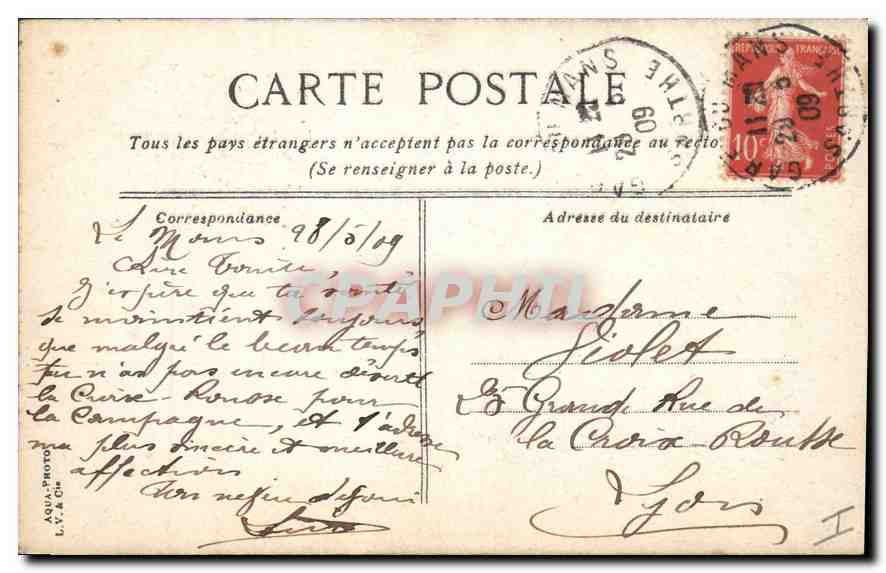 CARTE POSTALE
Tous les pays étrangers n'acceptent pas la correspondance au recto
(Se renseigner à la poste.)
RÉPUBLIQUE FRANÇAISE
10c POSTES
GARE DU MANS
SARTHE
29 5
09
MANS
SARTHE
09
Correspondance
Adresse du destinataire
Le Mans 28/5/09
Chère Tante,
J'espère que ta santé
se maintient toujours
que malgré le beau temps
tu n'as pas encore déserté
la Croix-Rousse pour
la Campagne, et t'adresse
ma plus sincère et meilleure
affection
Ton neveu
Madame
Violet
25 Grande Rue de
la Croix-Rousse
Lyon
AQUA-PHOTO
L. V. & Cie
CPAPHIL
H